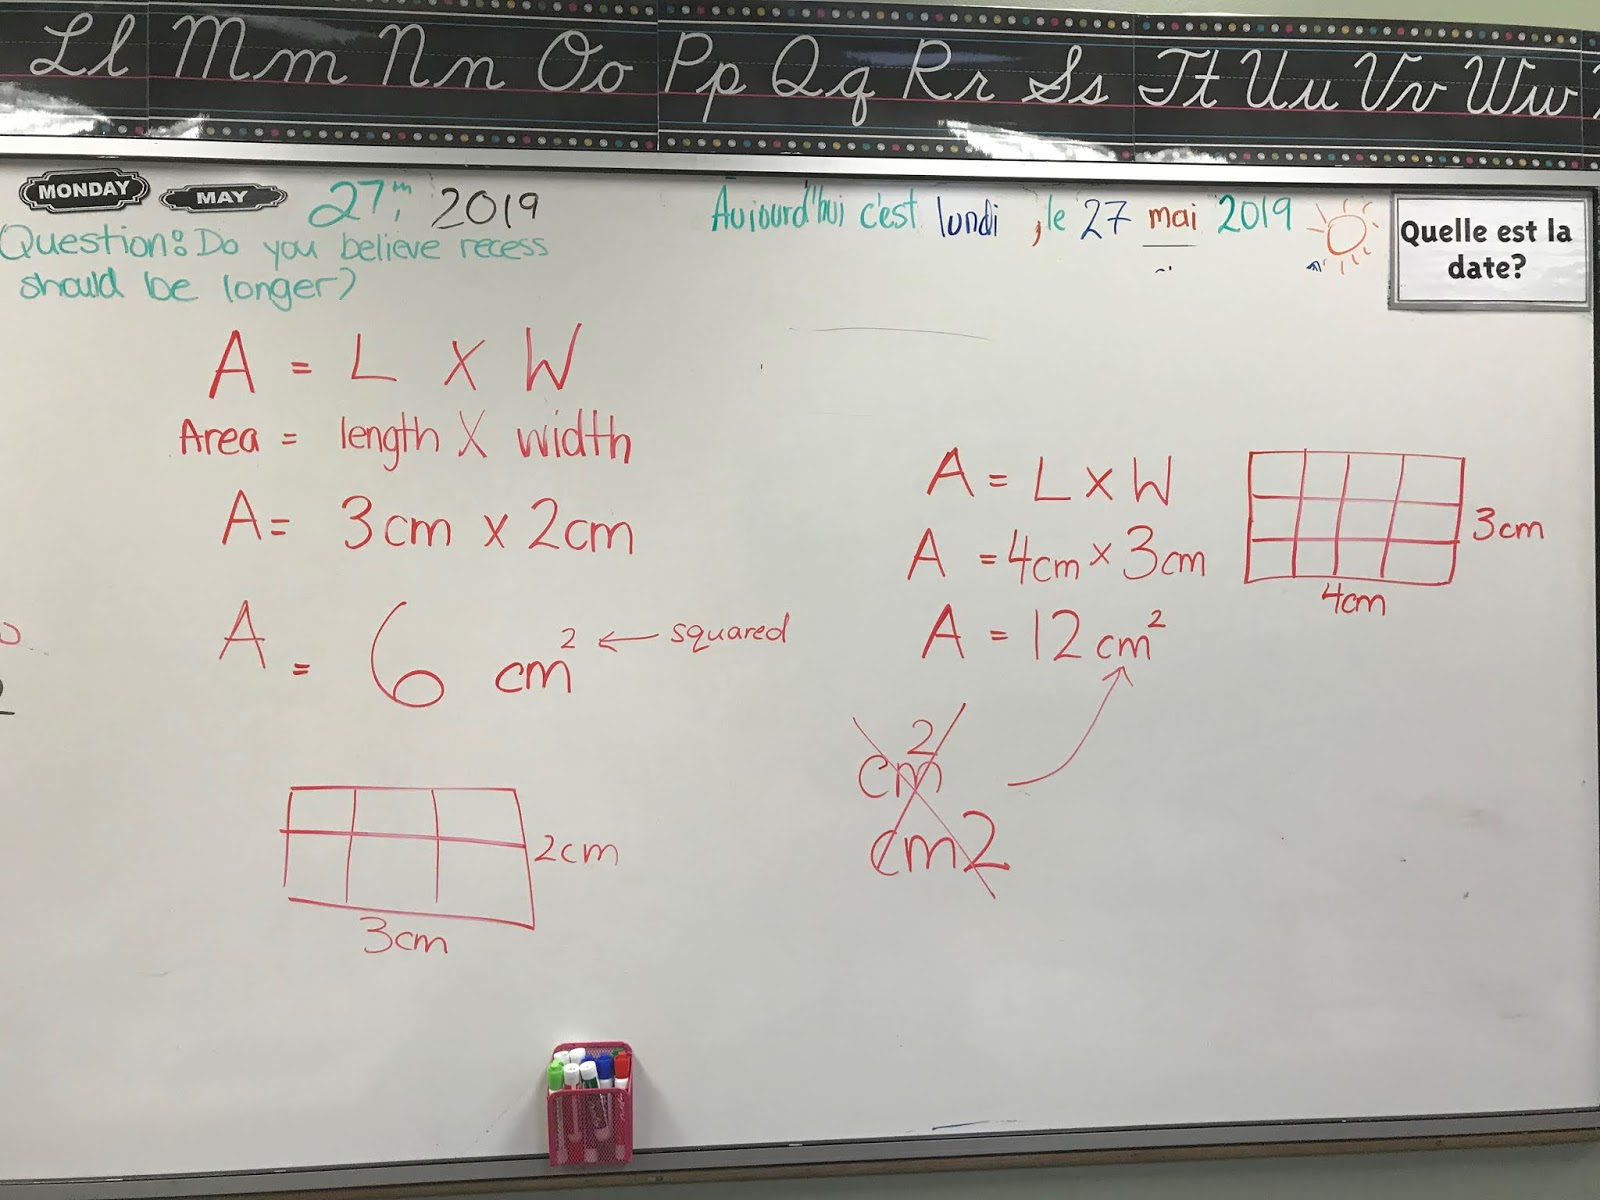 Ll Mm Nn Oo Pp Qq Rr Ss Tt Uu Vv Ww
MONDAY MAY 27th, 2019
Question: Do you believe recess
should be longer?
Aujourd'hui c'est lundi, le 27 mai 2019
Quelle est la
date?
A = L X W
Area = length X width
A = 3cm x 2cm
A = 6 cm² ← squared
2cm
3cm
A = L X W
A = 4cm x 3cm
A = 12 cm²
3cm
4cm
cm²
cm2